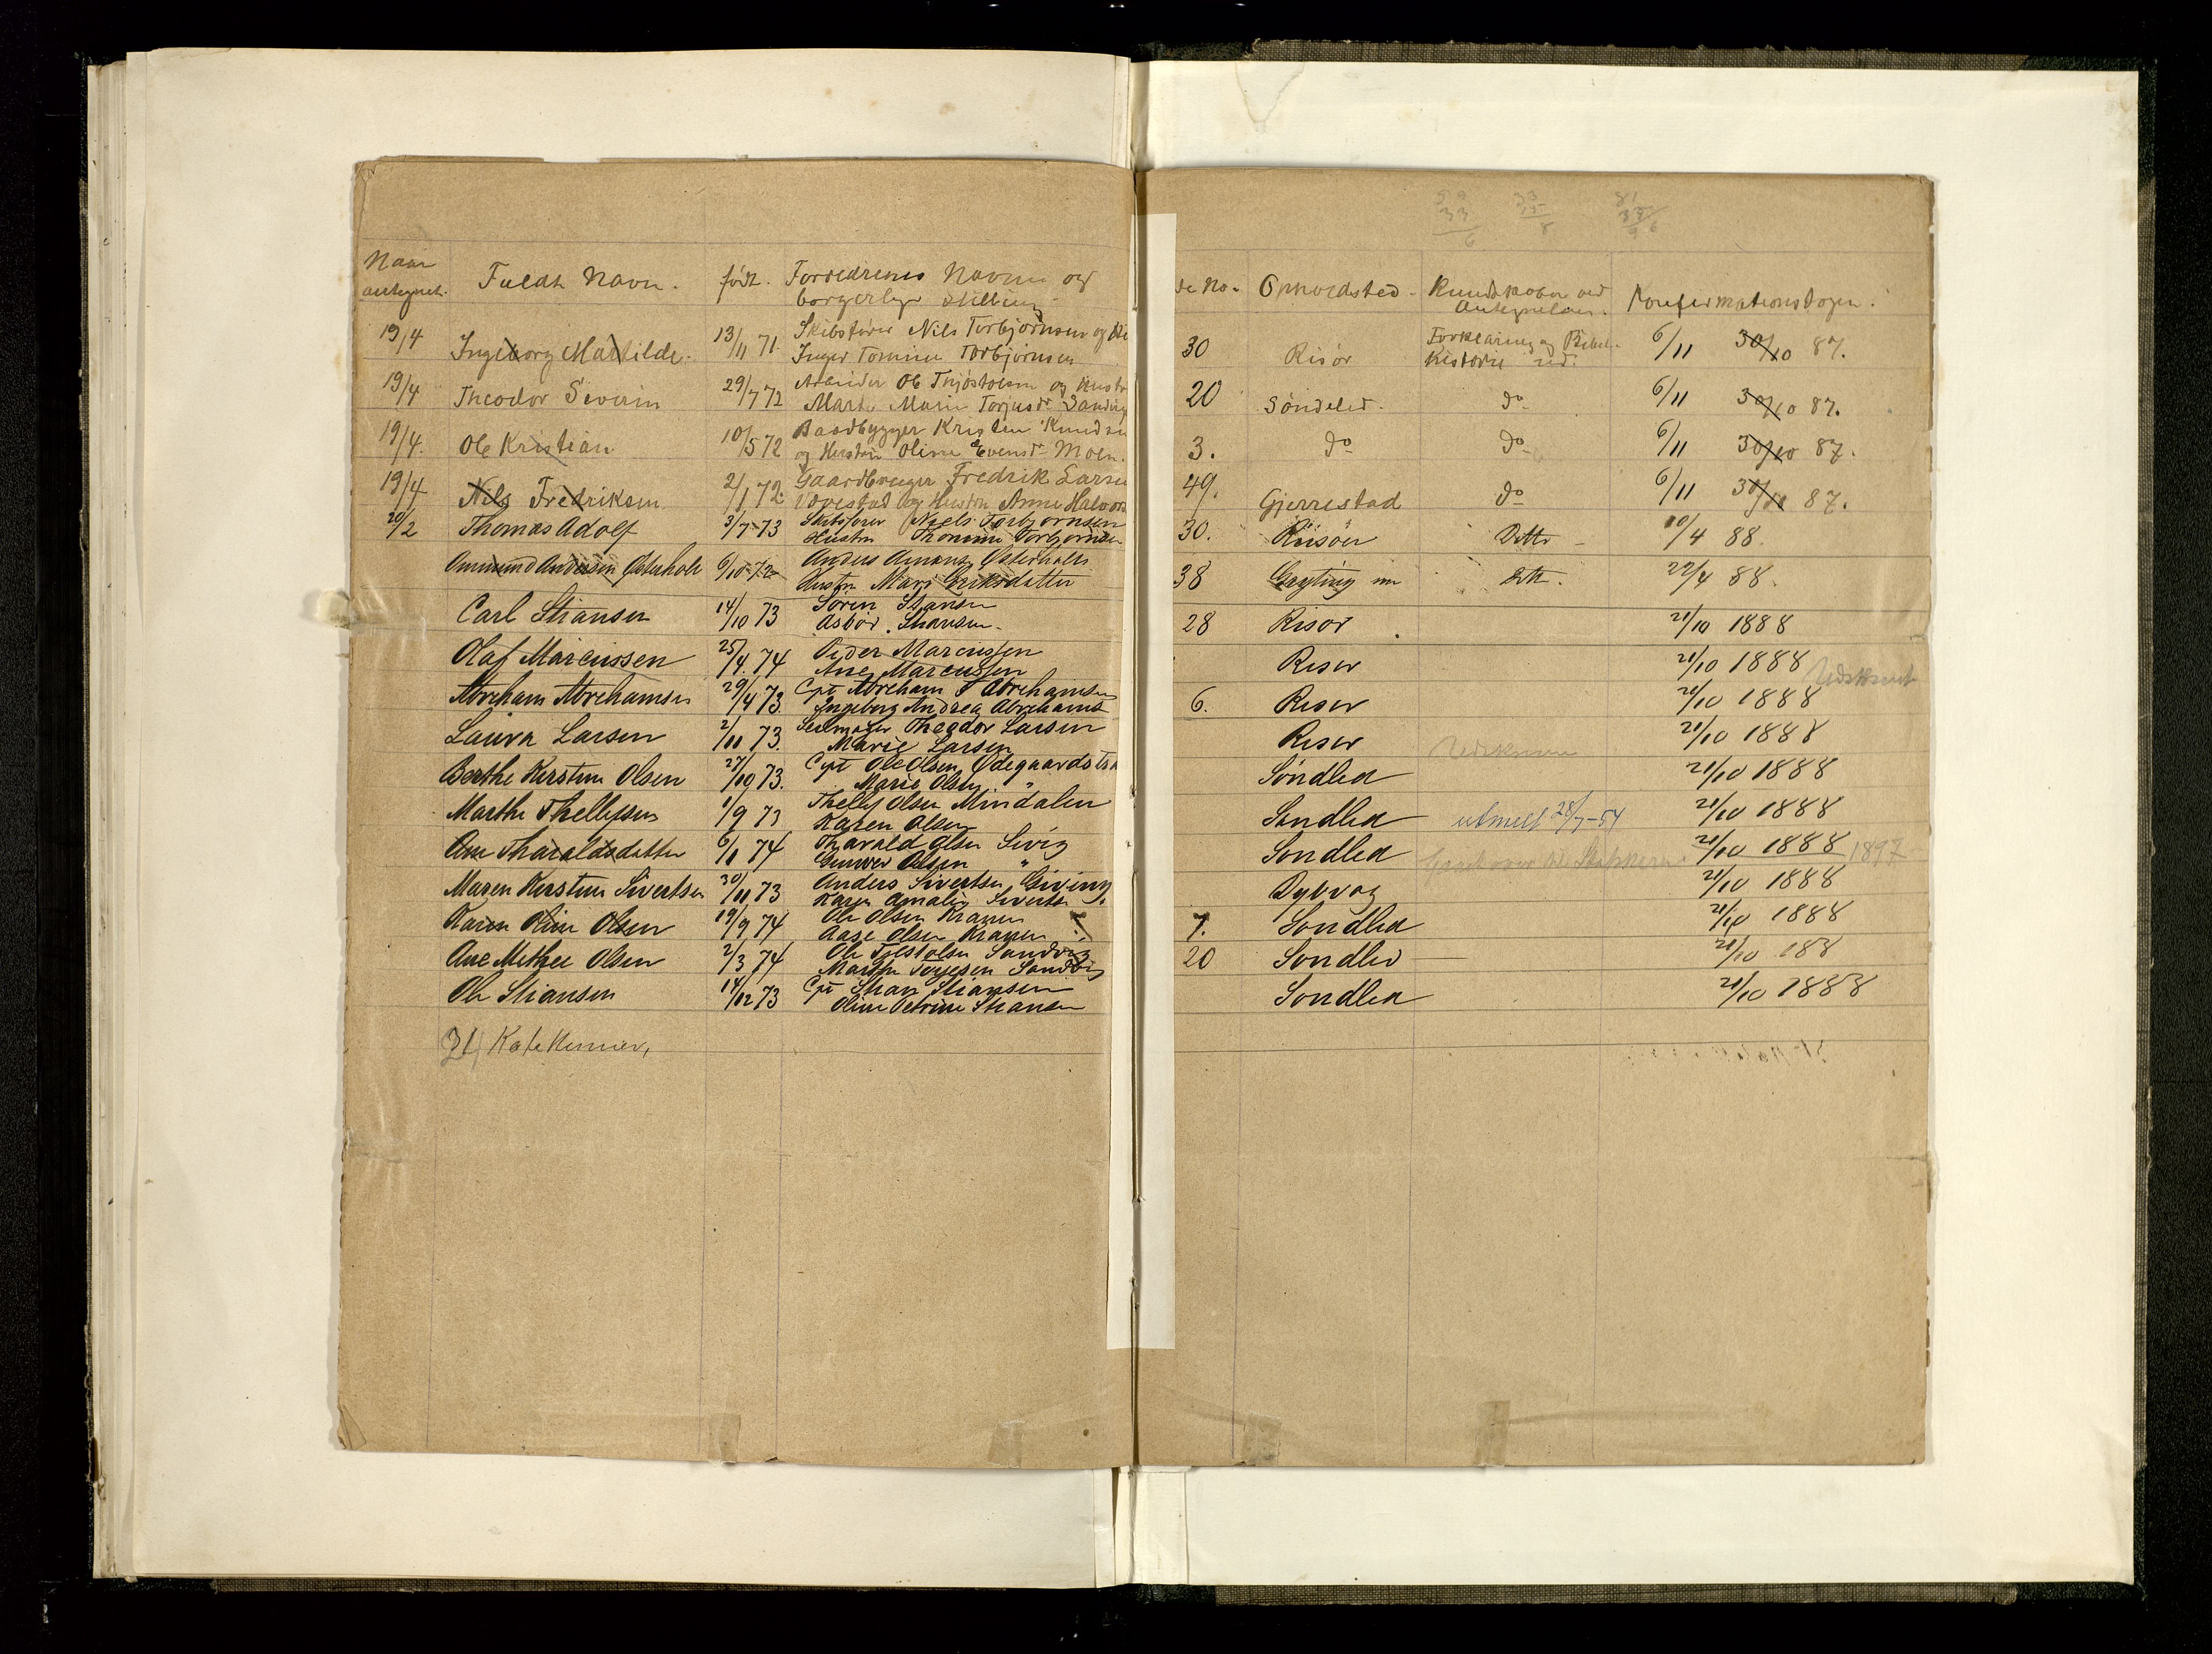 Naar antegnet. Fuldt Navn. født. Forældrenes Navne og borgerlige Stilling
19/4 Ingeborg Mattilde. 13/11 71. Skibsfører Nils Torbjørnsen og
Inger Tomine Torbjørnsen
19/4 Theodor Severin 29/7 72 Arbeider Ole Thjøstolsen og Hustr
Marte Marie Torjusdr Sandvig
19/4. Ole Kristian 10/5 72 Baadbygger Kristen Knudsen
og Hustru Oline Evensdr Moen.
19/4 Nils Fredriksen 2/1 72. Gaardbruger Fredrik Larsen
og Hustru Anne Halvors
20/2 Thomas Adolf 3/7-73 Skibsfører Niels Torbjørnsen
Hustru Thomine Torbjørnsen
Ammund Andersen Østerholt 6/10-72 Anders Østerholt
Hustru Mari Eriksdatter
Carl Stiansen 14/10 73 Søren Stiansen
Asbør. Stiansen.
Olaf Marcussen 25/4. 74 Peder Marcussen
Ane Marcussen
Abreham Abrehamsen 29/4 73 Cpt Abreham Abrehamsen
Ingeborg Andrea Abrehams
Laura Larsen 2/11 73. Seilmager Theodor Larsen
Marie Larsen
Berthe Kirstine Olsen 27/10 73. Cpt Ole Olsen Ødegaards
Marie Olsen "
Marthe Thellefsen 1/9 73 Thellef Olsen Mindalen
Karen Olsen
Ane Tharaldsdatter 6/1 74 Tharald Olsen Sivig
Gunver Olsen "
Maren Kirstine Sivertsen 30/11 73 Anders Sivertsen Giving
Karen Amalie Sivertsen "
Karen Oline Olsen 19/9 74 Ole Olsen Kranen
Aase Olsen Kranen
Ane Methee Olsen 2/3 74 Ole Sandvig
Marthe Torjesen Sandvig
Ole Stiansen 14/12 73 Cpt Stian Stiansen
Oline Petrine Stiansen
31 Katekumener,
de No. Opholdsted. Kundskaber ved Antegnelsen. Konfirmationsdagen.
30 Risør Forklaring og Bibel-
historie ud. 6/11 30/10 87.
20 Søndeled. do 6/11 30/10 87.
3. do do 6/11 30/10 87.
49. Gjerrestad do 6/11 30/10 87.
30. Riisøer Ditto 10/4 88.
38 22/4 88.
28 Risør. 21/10 1888
Riser 21/10 1888
6. Riser 21/10 1888
Riser 21/10 1888
Søndled 21/10 1888
Søndled utmeldt 28/7-54 21/10 1888
Søndled 21/10 1888 1897
Dypvag 21/10 1888
7. Søndled 21/10 1888
20 Søndled 21/10 188
Søndled 21/10 1888